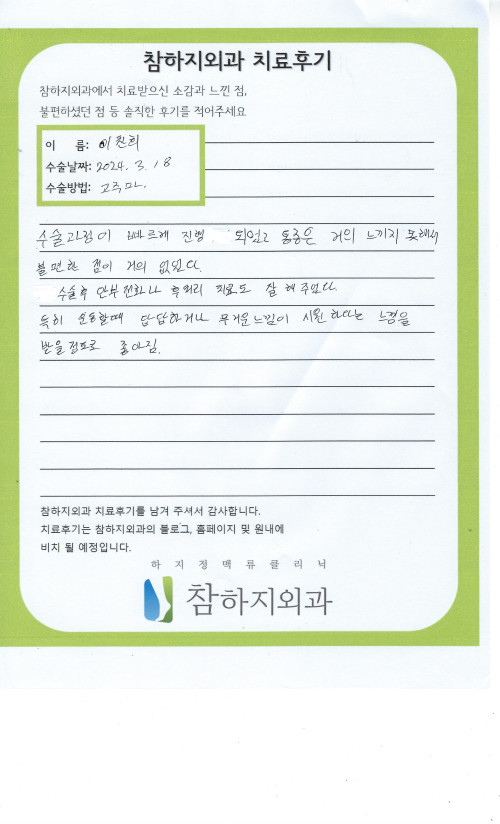 참하지외과 치료후기
참하지외과에서 치료받으신 소감과 느낀 점,
불편하셨던 점 등 솔직한 후기를 적어주세요
이 름: 이원희
수술날짜: 2024. 3. 18
수술방법: 고주파.
수술과정이 빠르게 진행 되었고 통증은 거의 느끼지 못해서
불편한 점이 거의 없었다.
수술후 안부전화나 후처리 치료도 잘 해주었다.
특히 운동할때 답답하거나 무거운느낌이 시원하다는 느낌을
받을정도로 좋아짐.
참하지외과 치료후기를 남겨 주셔서 감사합니다.
치료후기는 참하지외과의 블로그, 홈페이지 및 원내에
비치 될 예정입니다.
하지정맥류클리닉
참하지외과